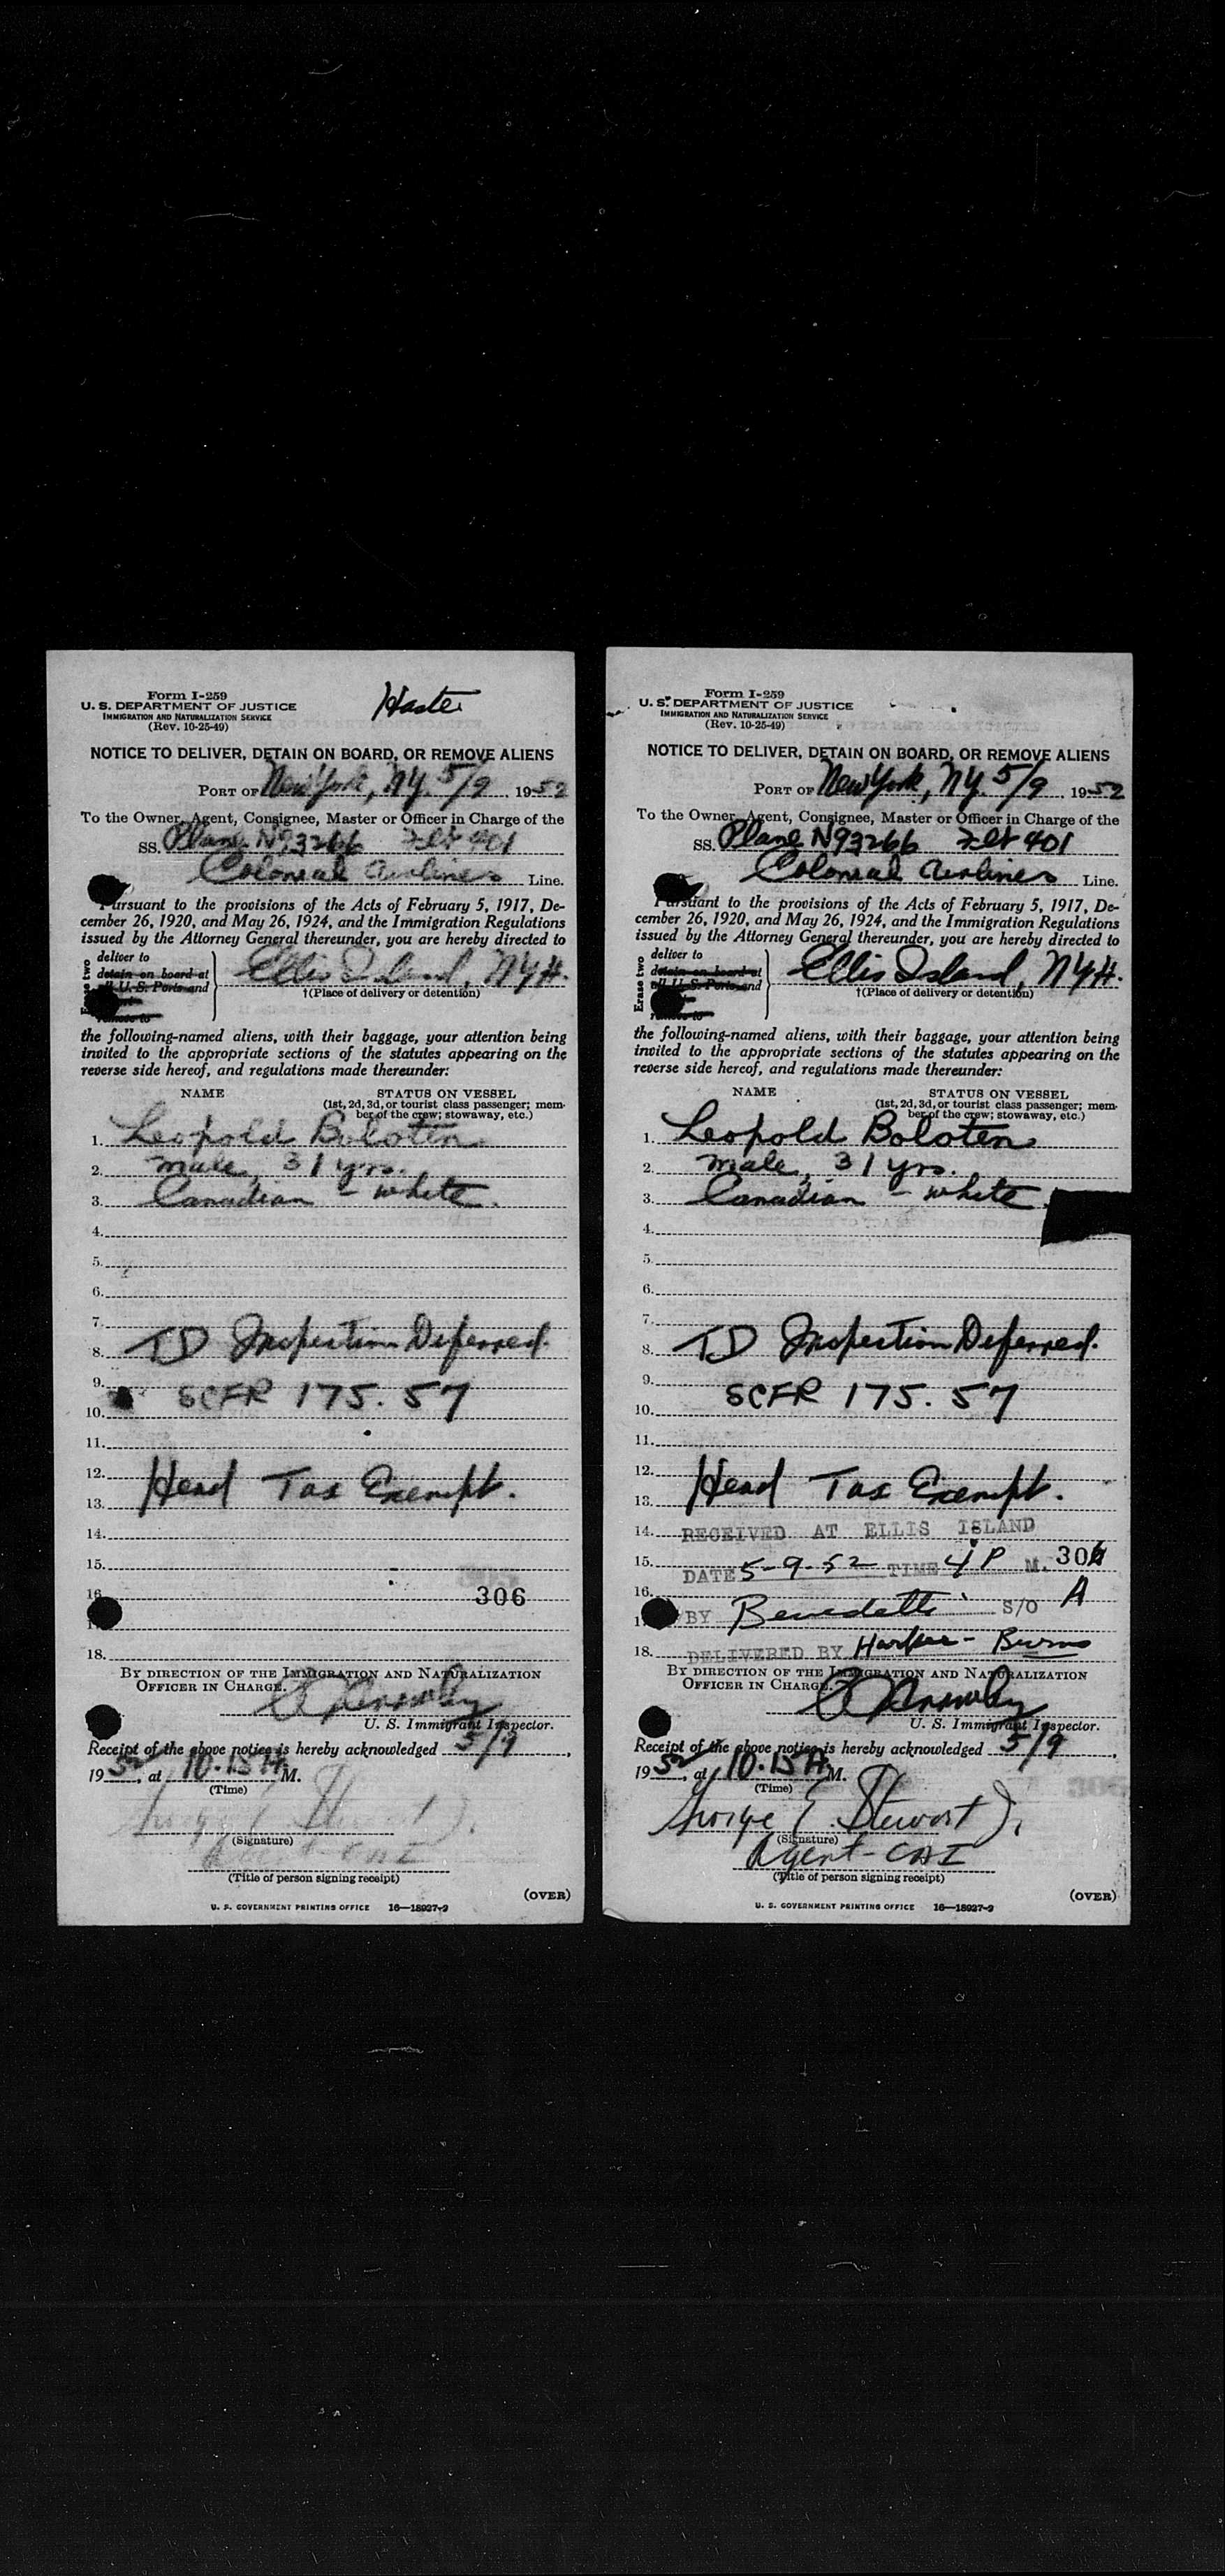 Form I-259
U. S. DEPARTMENT OF JUSTICE
IMMIGRATION AND NATURALIZATION SERVICE
(Rev. 10-25-49)
NOTICE TO DELIVER, DETAIN ON BOARD, OR REMOVE ALIENS
PORT OF New York, NY. 5/9 1952
To the Owner, Agent, Consignee, Master or Officer in Charge of the
SS. Plane N93266 Flt 401
Colonial Airlines Line.
Pursuant to the provisions of the Acts of February 5, 1917, De-
cember 26, 1920, and May 26, 1924, and the Immigration Regulations
issued by the Attorney General thereunder, you are hereby directed to
deliver to
detain on board at
all U. S. Ports and
remove to
Ellis Island, NYH.
†(Place of delivery or detention)
the following-named aliens, with their baggage, your attention being
invited to the appropriate sections of the statutes appearing on the
reverse side hereof, and regulations made thereunder:
NAME STATUS ON VESSEL
(1st, 2d, 3d, or tourist class passenger; mem-
ber of the crew; stowaway, etc.)
1. Leopold Boloten
2. Male, 31 yrs.
3. Canadian - white.
4.
5.
6.
7.
8. TD Inspection Deferred.
9.
10. 8CFR 175.57
11.
12.
13. Head Tax Exempt.
14.
15.
16. 306
18.
BY DIRECTION OF THE IMMIGRATION AND NATURALIZATION
OFFICER IN CHARGE.
U. S. Immigrant Inspector.
Receipt of the above notice is hereby acknowledged 5/9,
1952, at 10.15 A M.
(Time)
(Signature)
(Title of person signing receipt)
(OVER)
U. S. GOVERNMENT PRINTING OFFICE 16—18927-2
Form I-259
U. S. DEPARTMENT OF JUSTICE
IMMIGRATION AND NATURALIZATION SERVICE
(Rev. 10-25-49)
NOTICE TO DELIVER, DETAIN ON BOARD, OR REMOVE ALIENS
PORT OF New York, NY. 5/9 1952
To the Owner, Agent, Consignee, Master or Officer in Charge of the
SS. Plane N93266 Flt 401
Colonial Airlines Line.
Pursuant to the provisions of the Acts of February 5, 1917, De-
cember 26, 1920, and May 26, 1924, and the Immigration Regulations
issued by the Attorney General thereunder, you are hereby directed to
Erase two
deliver to
detain on board at
all U. S. Ports and
remove to
Ellis Island, NYH.
†(Place of delivery or detention)
the following-named aliens, with their baggage, your attention being
invited to the appropriate sections of the statutes appearing on the
reverse side hereof, and regulations made thereunder:
NAME STATUS ON VESSEL
(1st, 2d, 3d, or tourist class passenger; mem-
ber of the crew; stowaway, etc.)
1. Leopold Boloten
2. Male, 31 yrs.
3. Canadian - white.
4.
5.
6.
7.
8. TD Inspection Deferred.
9.
10. 8CFR 175.57
11.
12.
13. Head Tax Exempt.
14. RECEIVED AT ELLIS ISLAND
15. DATE 5-9-52 TIME 4 P M. 306
16. A
BY Benedetti S/O
18. DELIVERED BY Harper - Burns
BY DIRECTION OF THE IMMIGRATION AND NATURALIZATION
OFFICER IN CHARGE.
U. S. Immigrant Inspector.
Receipt of the above notice is hereby acknowledged 5/9,
1952, at 10.15 A M.
(Time)
George E Stewart Jr.
(Signature)
Agent-CAI
(Title of person signing receipt)
(OVER)
U. S. GOVERNMENT PRINTING OFFICE 16—18927-2